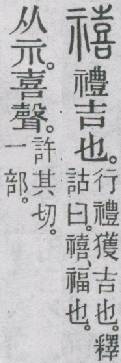 禧 禮吉也。行禮獲吉也。釋
詁曰。禧、福也。
从示。喜聲。許其切。
一部。